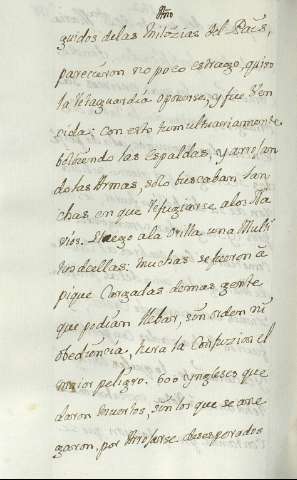 guidos de las Milizias del Pais,
parecieron no poco estrago, quiso
la retaguardia oponerse, y fue Ven
cida; con esto tumultuariamente
bolviendo las espaldas, y arrojan
do las Armas, solo buscaban lan
chas, en que refugiarse a los Na
vios. Luego a la orilla una Multi
tud de ellas. muchas se fueron a
pique Cargadas de mas gente
que podian llebar, sin orden ni
obediencia, hera la Confuzion el
maior peligro. 600 yngleses que
daron muertos, sin los que se ane
garon, por Arrojarse desesperados